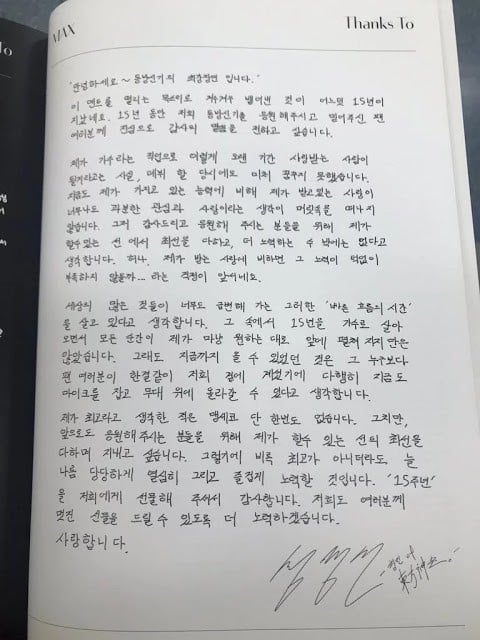 To
MAX
Thanks To
'안녕하세요~ 동방신기의 최강창민 입니다.'
이 멘트를 떨리는 목소리로 겨우겨우 뱉어낸 것이 어느덧 15년이
지났네요. 15년 동안 저희 동방신기를 응원해주시고 믿어주신 팬
여러분께 진심으로 감사의 말씀을 전하고 싶습니다.
제가 가수라는 직업으로 이렇게 오랜 기간 사랑받는 사람이
될거라고는 사실, 데뷔 할 당시에도 미처 꿈꾸지 못했습니다.
지금도 제가 가지고 있는 능력에 비해 제가 받고있는 사랑이
너무나도 과분한 관심과 사랑이라는 생각이 머릿속을 떠나지
않습니다. 그저 감사드리고 응원해 주시는 분들을 위해 제가
할수있는 선에서 최선을 다하고, 더 노력하는 수 밖에는 없다고
생각합니다. 허나, 제가 받는 사랑에 비하면 그 노력이 턱없이
부족하지 않을까... 라는 걱정이 앞서네요.
세상의 많은 것들이 너무도 급변해 가는 그러한 '빠른 흐름의 시간'
을 살고 있다고 생각합니다. 그 속에서 15년을 가수로 살아
오면서 모든 순간이 제가 마냥 원하는 대로 앞에 펼쳐지지만은
않았습니다. 그래도 지금까지 올 수 있었던 것은 그 누구보다
팬 여러분이 한결같이 저희 곁에 계셨기에 다행히 지금도
마이크를 잡고 무대 위에 올라갈 수 있다고 생각합니다.
제가 최고라고 생각한 적은 맹세코 단 한번도 없습니다. 그치만,
앞으로도 응원해주시는 분들을 위해 제가 할수 있는 선의 최선을
다하며 지내고 싶습니다. 그렇기에 비록 최고가 아니더라도 늘
나름 당당하게 열심히 그리고 즐겁게 노력할 것입니다. '15주년'
을 저희에게 선물해 주셔서 감사합니다. 저희도 여러분께
멋진 선물을 드릴 수 있도록 더 노력하겠습니다.
사랑합니다.
東方神起